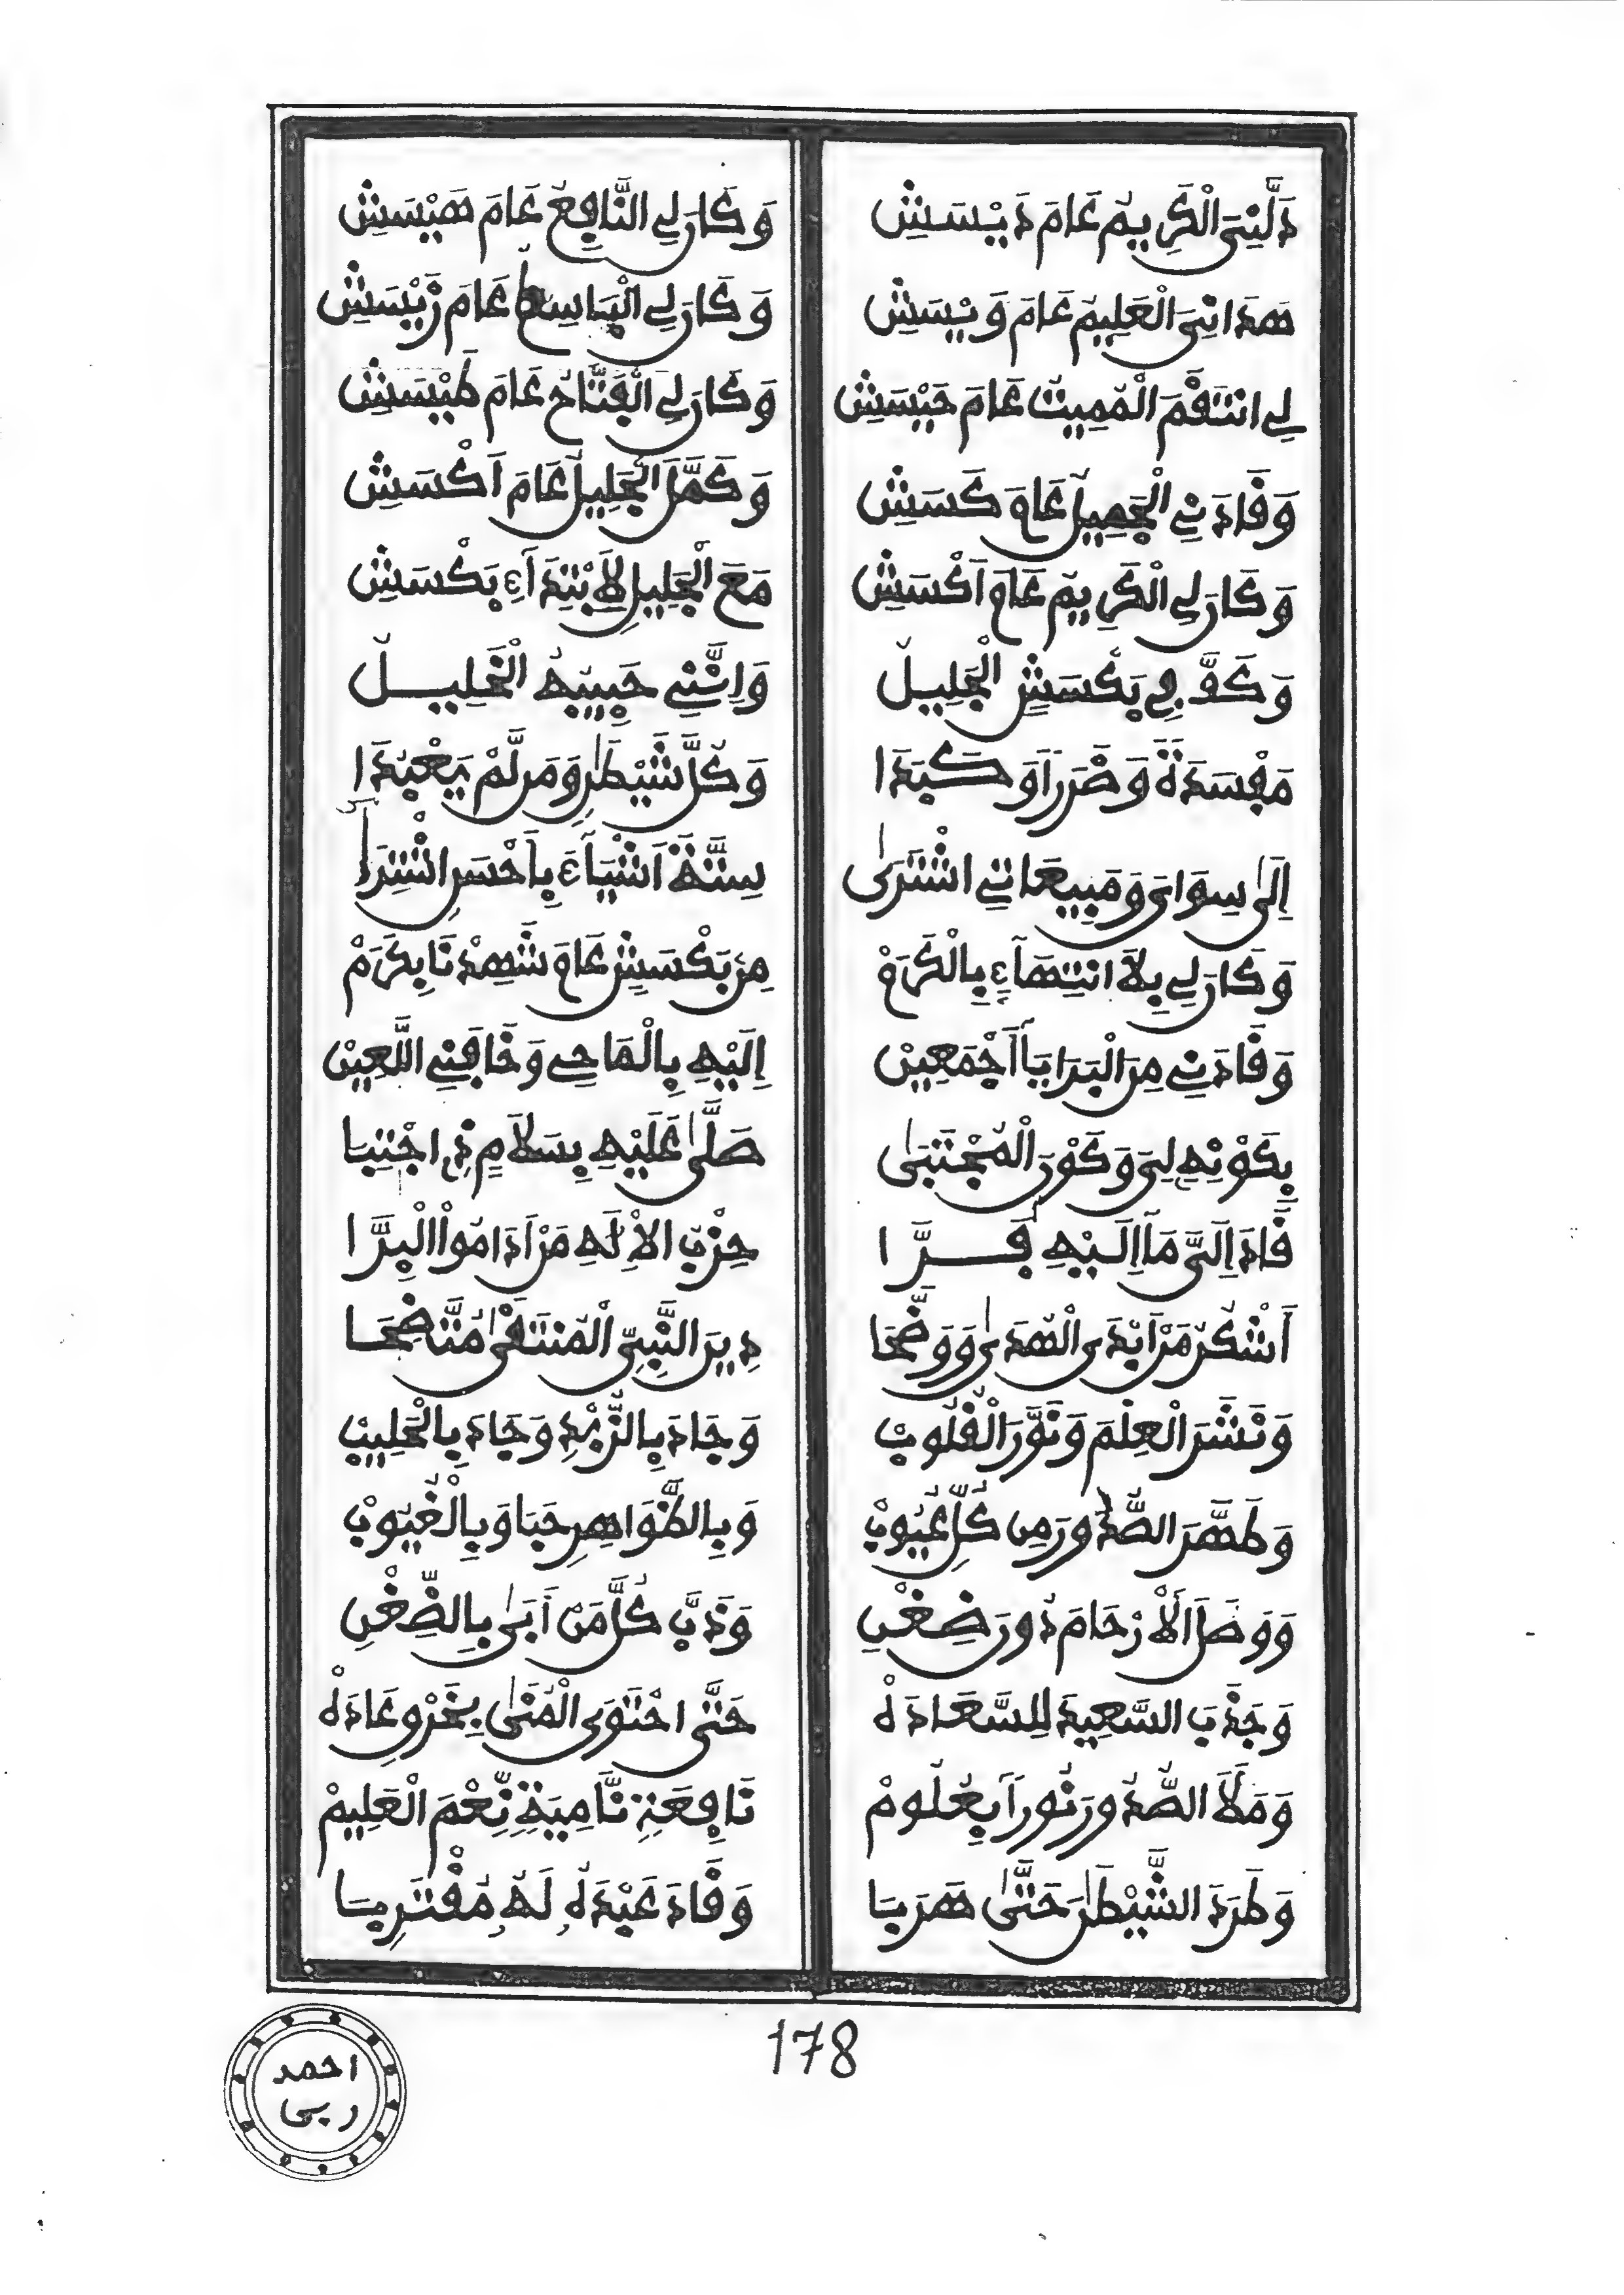 دَلَّنِيَ الْكَرِيمُ عَامَ دَيْسَشِ وَكَانَ لِي النَّافِعُ عَامَ هَيْسَشِ
هَدَانِيَ الْعَلِيمُ عَامَ وَيْسَشِ وَكَانَ لِي الْبَاسِطُ عَامَ زَيْسَشِ
لِي انتَقَمَ الْمُمِيتُ عَامَ حَيْسَشِ وَكَانَ لِي الْفَتَّاحُ عَامَ طَيْسَشِ
وَقَادَ لِي الْجَمِيلُ عَامَ كَسَشِ وَكَمَّلَ الْجَلِيلُ عَامَ أَكْسَشِ
وَكَانَ لِي الْكَرِيمُ عَامَ أَكْسَشِ مَعَ الْجَلِيلِ لِابْتِدَآءِ بَكْسَشِ
وَكَفَّ فِي بَكْسَشِ الْجَلِيلُ وَإِنَّنِي حَبِيبُهُ الْخَلِيلُ
مَفْسَدَةً وَضَرَراً وَكَبَدَا وَكُلَّ شَيْطَٰنٍ وَمَن لَّمْ يَعْبُدَا
إِلَىٰ سِوَايَ وَمَبِيعَاتِي اشْتَرَىٰ سِتَّةَ أَشْيَآءَ بِأَحْسَنِ اشْتِرَا
وَكَانَ لِي بِلَا انتِهَآءٍ بِالْكَرَمْ مِن بَكْسَشٍ عَامَ شَهِدْنَا بِكَرَمْ
وَقَادَنِي مِنَ الْبَرَايَا أَجْمَعِينْ إِلَيْهِ بِالْمَاحِي وَخَافَنِي اللَّعِينْ
بِكَوْنِهِ لِيَ وَكَوْنِ الْمُجْتَبَىٰ صَلَّىٰ عَلَيْهِ بِسَلَامٍ ذِي اجْتِبَا
قَادَ إِلَيَّ مَآ إِلَيْهِ فَرَّا حِزْبُ الْإِلَٰهِ مَنْ أَدَامُواْ الْبِرَّا
أَشْكُرُ مَنْ أَبْدَى الْهُدَىٰ وَوَضَّحَا دِينَ النَّبِيِّ الْمُنتَقَىٰ مُتَّضِحَا
وَنَشَرَ الْعِلْمَ وَنَوَّرَ الْقُلُوبْ وَجَادَ بِالزُّبْدِ وَجَادَ بِالْحَلِيبْ
وَطَهَّرَ الصُّدُورَ مِن كُلِّ عُيُوبْ وَبِالظَّوَاهِرِ حَبَا وَبِالْغُيُوبْ
وَوَصَلَ الْأَرْحَامَ دُونَ ضِغْنِ وَذَبَّ كُلَّ مَنْ أَبَىٰ بِالضِّغْنِ
وَجَذَبَ السَّعِيدَ لِلسَّعَادَهْ حَتَّى احْتَوَى الْمُنَىٰ بِخَرْقِ عَادَهْ
وَمَلَأَ الصُّدُورَ نُوراً بِعُلُومْ نَافِعَةٍ نَّامِيَةٍ نِّعْمَ الْعَلِيمْ
وَطَرَدَ الشَّيْطَٰنَ حَتَّىٰ هَرَبَا وَقَادَ عَبْدَهُ لَهُ مُقْتَرِبَا
178
احمد
ربى